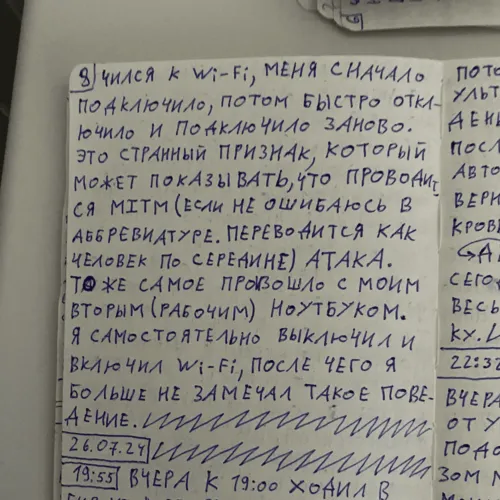 8 чился к Wi-Fi, меня сначало
подключило, потом быстро откл-
ючило и подключило заново.
Это странный признак, который
может показывать, что проводит
ся MITM (если не ошибаюсь в
аббревиатуре. Переводится как
человек по середине) атака.
Тоже самое произошло с моим
вторым (рабочим) ноутбуком.
Я самостоятельно выключил и
включил Wi-Fi, после чего я
больше не замечал такое пове-
дение.
26.07.24
19:55 Вчера к 19:00 ходил в
пото
ульт
ден
посл
авто
верн
кров
сего
весь
ку.
22:32
вчера
от у
подо
зом